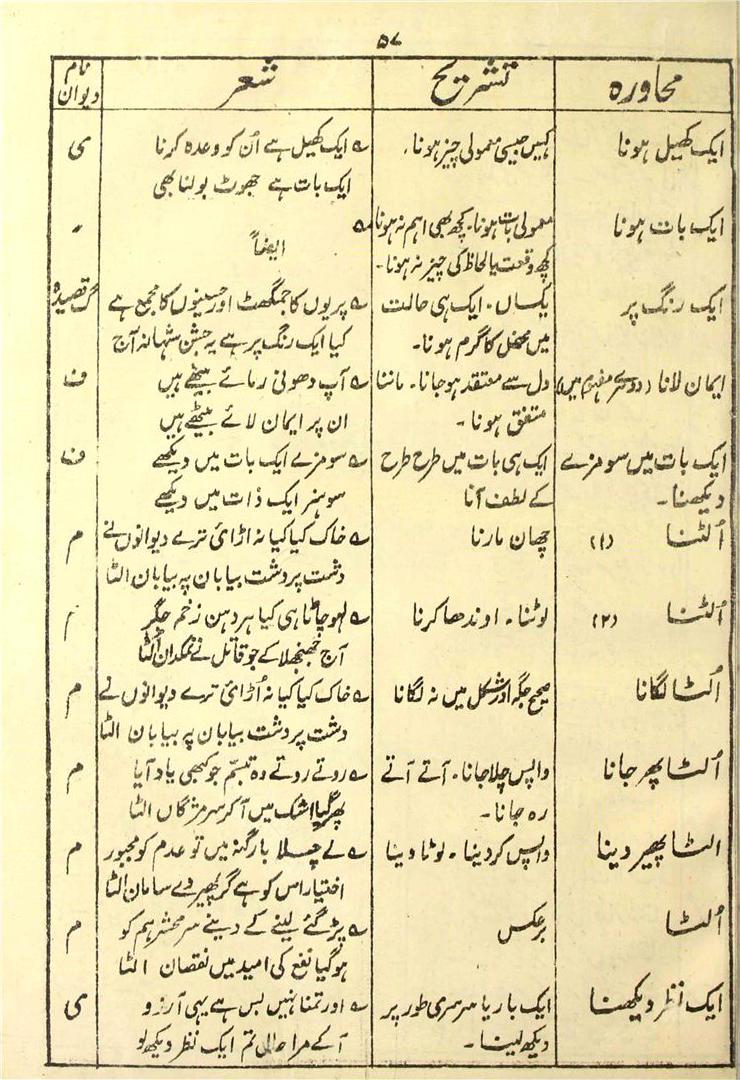 ۵۷
محاورہ تشریح شعر نام دیوان
ایک کھیل ہونا کھیل جیسی معمولی چیز ہونا۔ ے ایک کھیل ہے اُن کو وعدہ کرنا ی
ایک بات ہے جھوٹ بولنا بھی
ایک بات ہونا معمولی بات ہونا۔ کچھ بھی اہم نہ ہونا ے ایضاً 〃
کچھ وقعت یا لحاظ کی چیز نہ ہونا۔
ایک رنگ پر یکساں۔ ایک ہی حالت ے پریوں کا جمگھٹ اور حسینوں کا مجمع ہے گ قصیدہ
میں محفل کا گرم ہونا۔ کیا ایک رنگ پر ہے یہ جشن شہانہ آج
ایمان لانا (دوسرے مفہوم میں) دل سے معتقد ہو جانا۔ ماننا ے آپ دھونی رمائے بیٹھے ہیں ف
متفق ہونا۔ ان پر ایمان لائے بیٹھے ہیں
ایک بات میں سو مزے ایک ہی بات میں طرح طرح ے سو مزے ایک بات میں دیکھے ف
دیکھنا۔ کے لطف آنا سو ہنر ایک ذات میں دیکھے
اُلٹنا (۱) چھان مارنا ے خاک کیا کیا نہ اڑائی ترے دیوانوں نے م
دشت پر دشت بیابان پہ بیابان الٹا
اُلٹنا (۲) لوٹنا۔ اوندھا کرنا ے لہو چاٹا ہی کیا ہر دہن زخم جگر م
آج جھنجھلا کے جو قاتل نے نمکدان اُلٹا
اُلٹا لگانا صحیح جگہ اور شکل میں نہ لگانا ے خاک کیا کیا نہ اُڑائی ترے دیوانوں نے م
دشت پر دشت بیابان پہ بیابان الٹا
اُلٹا پھر جانا واپس چلا جانا۔ آتے آتے ے روتے روتے وہ تبسّم جو کبھی یاد آیا م
رہ جانا۔ پھر گیا اشک میں آ کر سر مژگاں الٹا
الٹا پھیر دینا واپس کر دینا۔ لوٹا دینا ے لے چلا بار گنہ میں تو عدم کو مجبور م
اختیار اس کو ہے گر پھیر دے سامان الٹا
اُلٹا برعکس ے پڑ گئے لینے کے دینے سر محشر ہم کو م
ہو گیا نفع کی امید میں نقصان الٹا
ایک نظر دیکھنا ایک بار یا سرسری طور پر ے اور تمنا نہیں بس ہے یہی آرزو ی
دیکھ لینا۔ آ کے مرا حال تم ایک نظر دیکھ لو